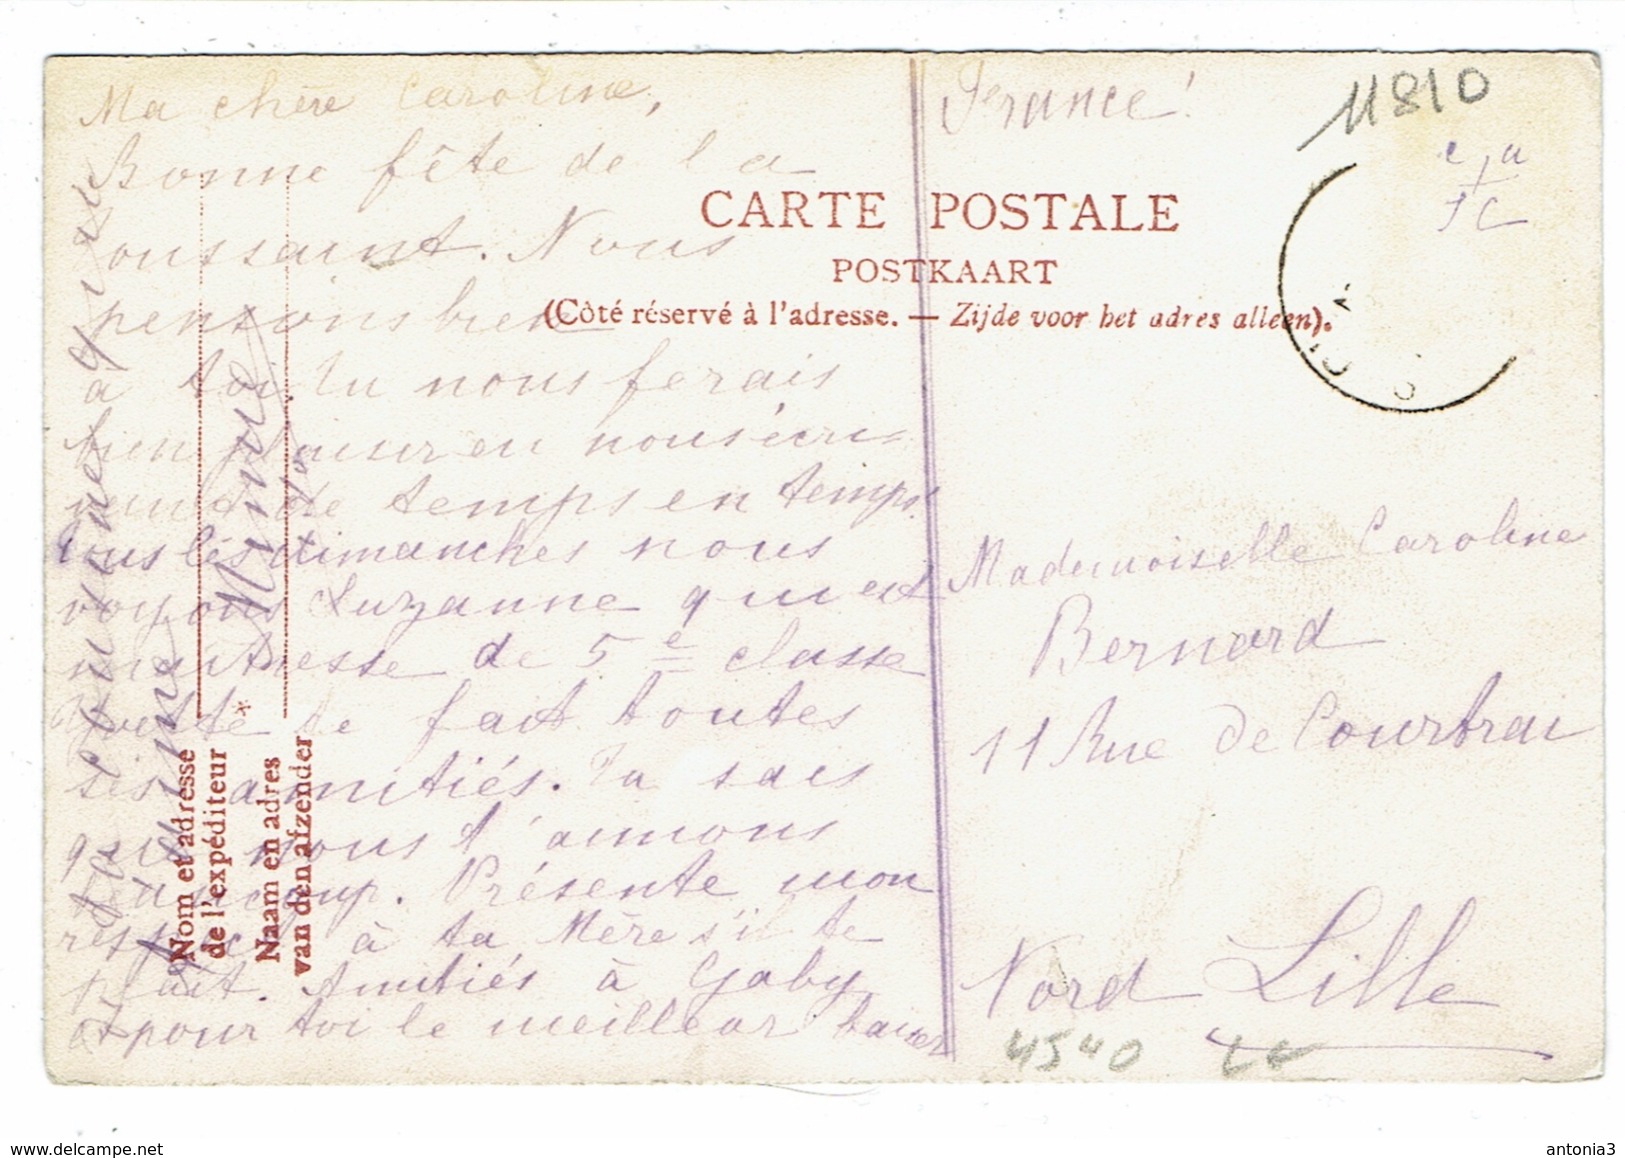 Ma chère Caroline,
Bonne fête de la
oussaint. Nous
pensons bien
à toi. Tu nous ferais
bien plaisir en nous écri=
vant de temps en temps.
Tous les dimanches nous
voyons Suzanne qui est
maitresse de 5e classe
te fait toutes
ses amitiés. Tu sais
que nous t'aimons
beaucoup. Présente mon
respect à ta Mère s'il te
plait. Amitiés à Gaby
et pour toi le meilleur baiser
Mimie
France!
11810
CARTE POSTALE
POSTKAART
(Côté réservé à l'adresse. — Zijde voor het adres alleen).
Mademoiselle Caroline
Bernard
11 Rue de Courtrai
Nord Lille
4540
Nom et adresse
de l'expéditeur
Naam en adres
van den afzender
delcampe.net
antonia3